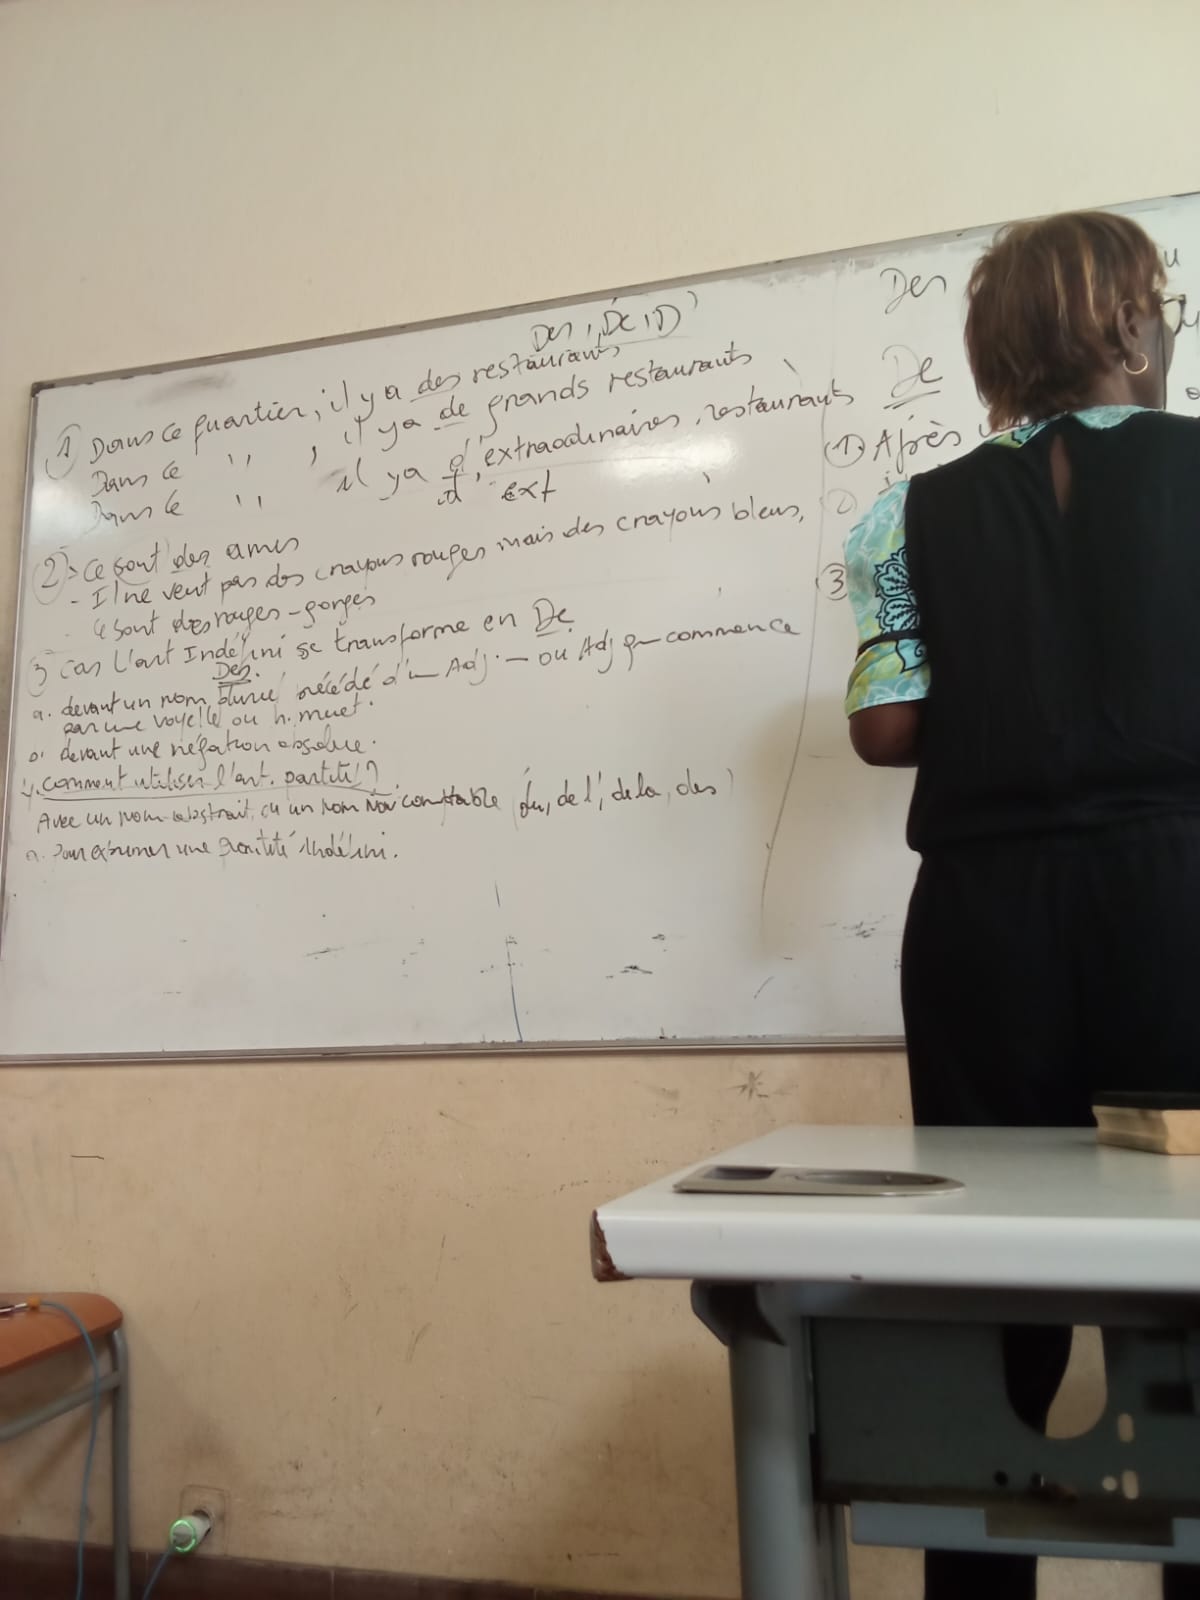 Des, De, D'
1 Dans ce quartier, il y a des restaurants
Dans ce '' , il y a de grands restaurants
Dans ce '' il y a d'extraordinaires restaurants
d' ext
2 - Ce sont des amis
- Il ne veut pas des crayons rouges mais des crayons bleus,
Ce sont des rouges-gorges
3 cas L'art Indéfini se transforme en De
Des.
a. devant un nom pluriel précédé d'un Adj. - ou Adj commence
par une voyelle ou h. muet.
b. devant une négation absolue.
Comment utiliser l'art. partitif?
Avec un nom abstrait, ou un nom Non comptable (du, de l', de la, des)
a. Pour exprimer une quantité indéfini.
Des
De
1. Après
2
3